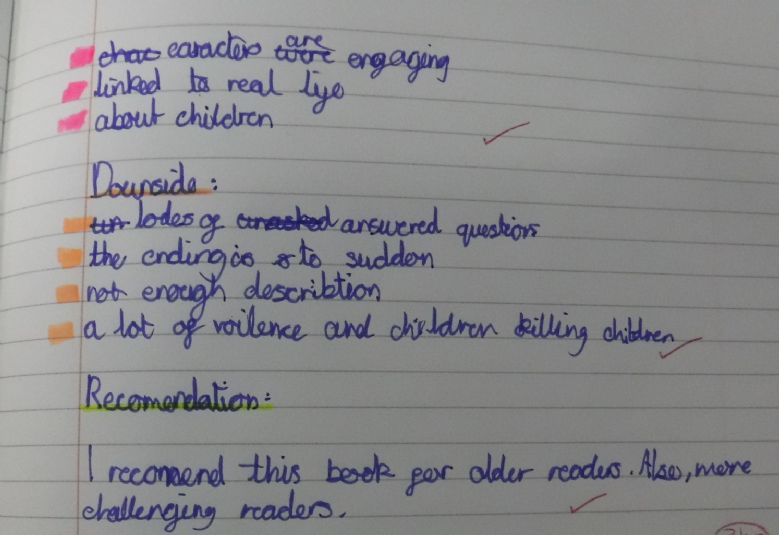 caracters are engaging
linked to real liye
about children
Downside:
lodes of answered questions
the ending is to sudden
not enough describtion
a lot of voilence and children killing children
Recomendation:
I recomend this book for older readers. Also, more
challenging readers.